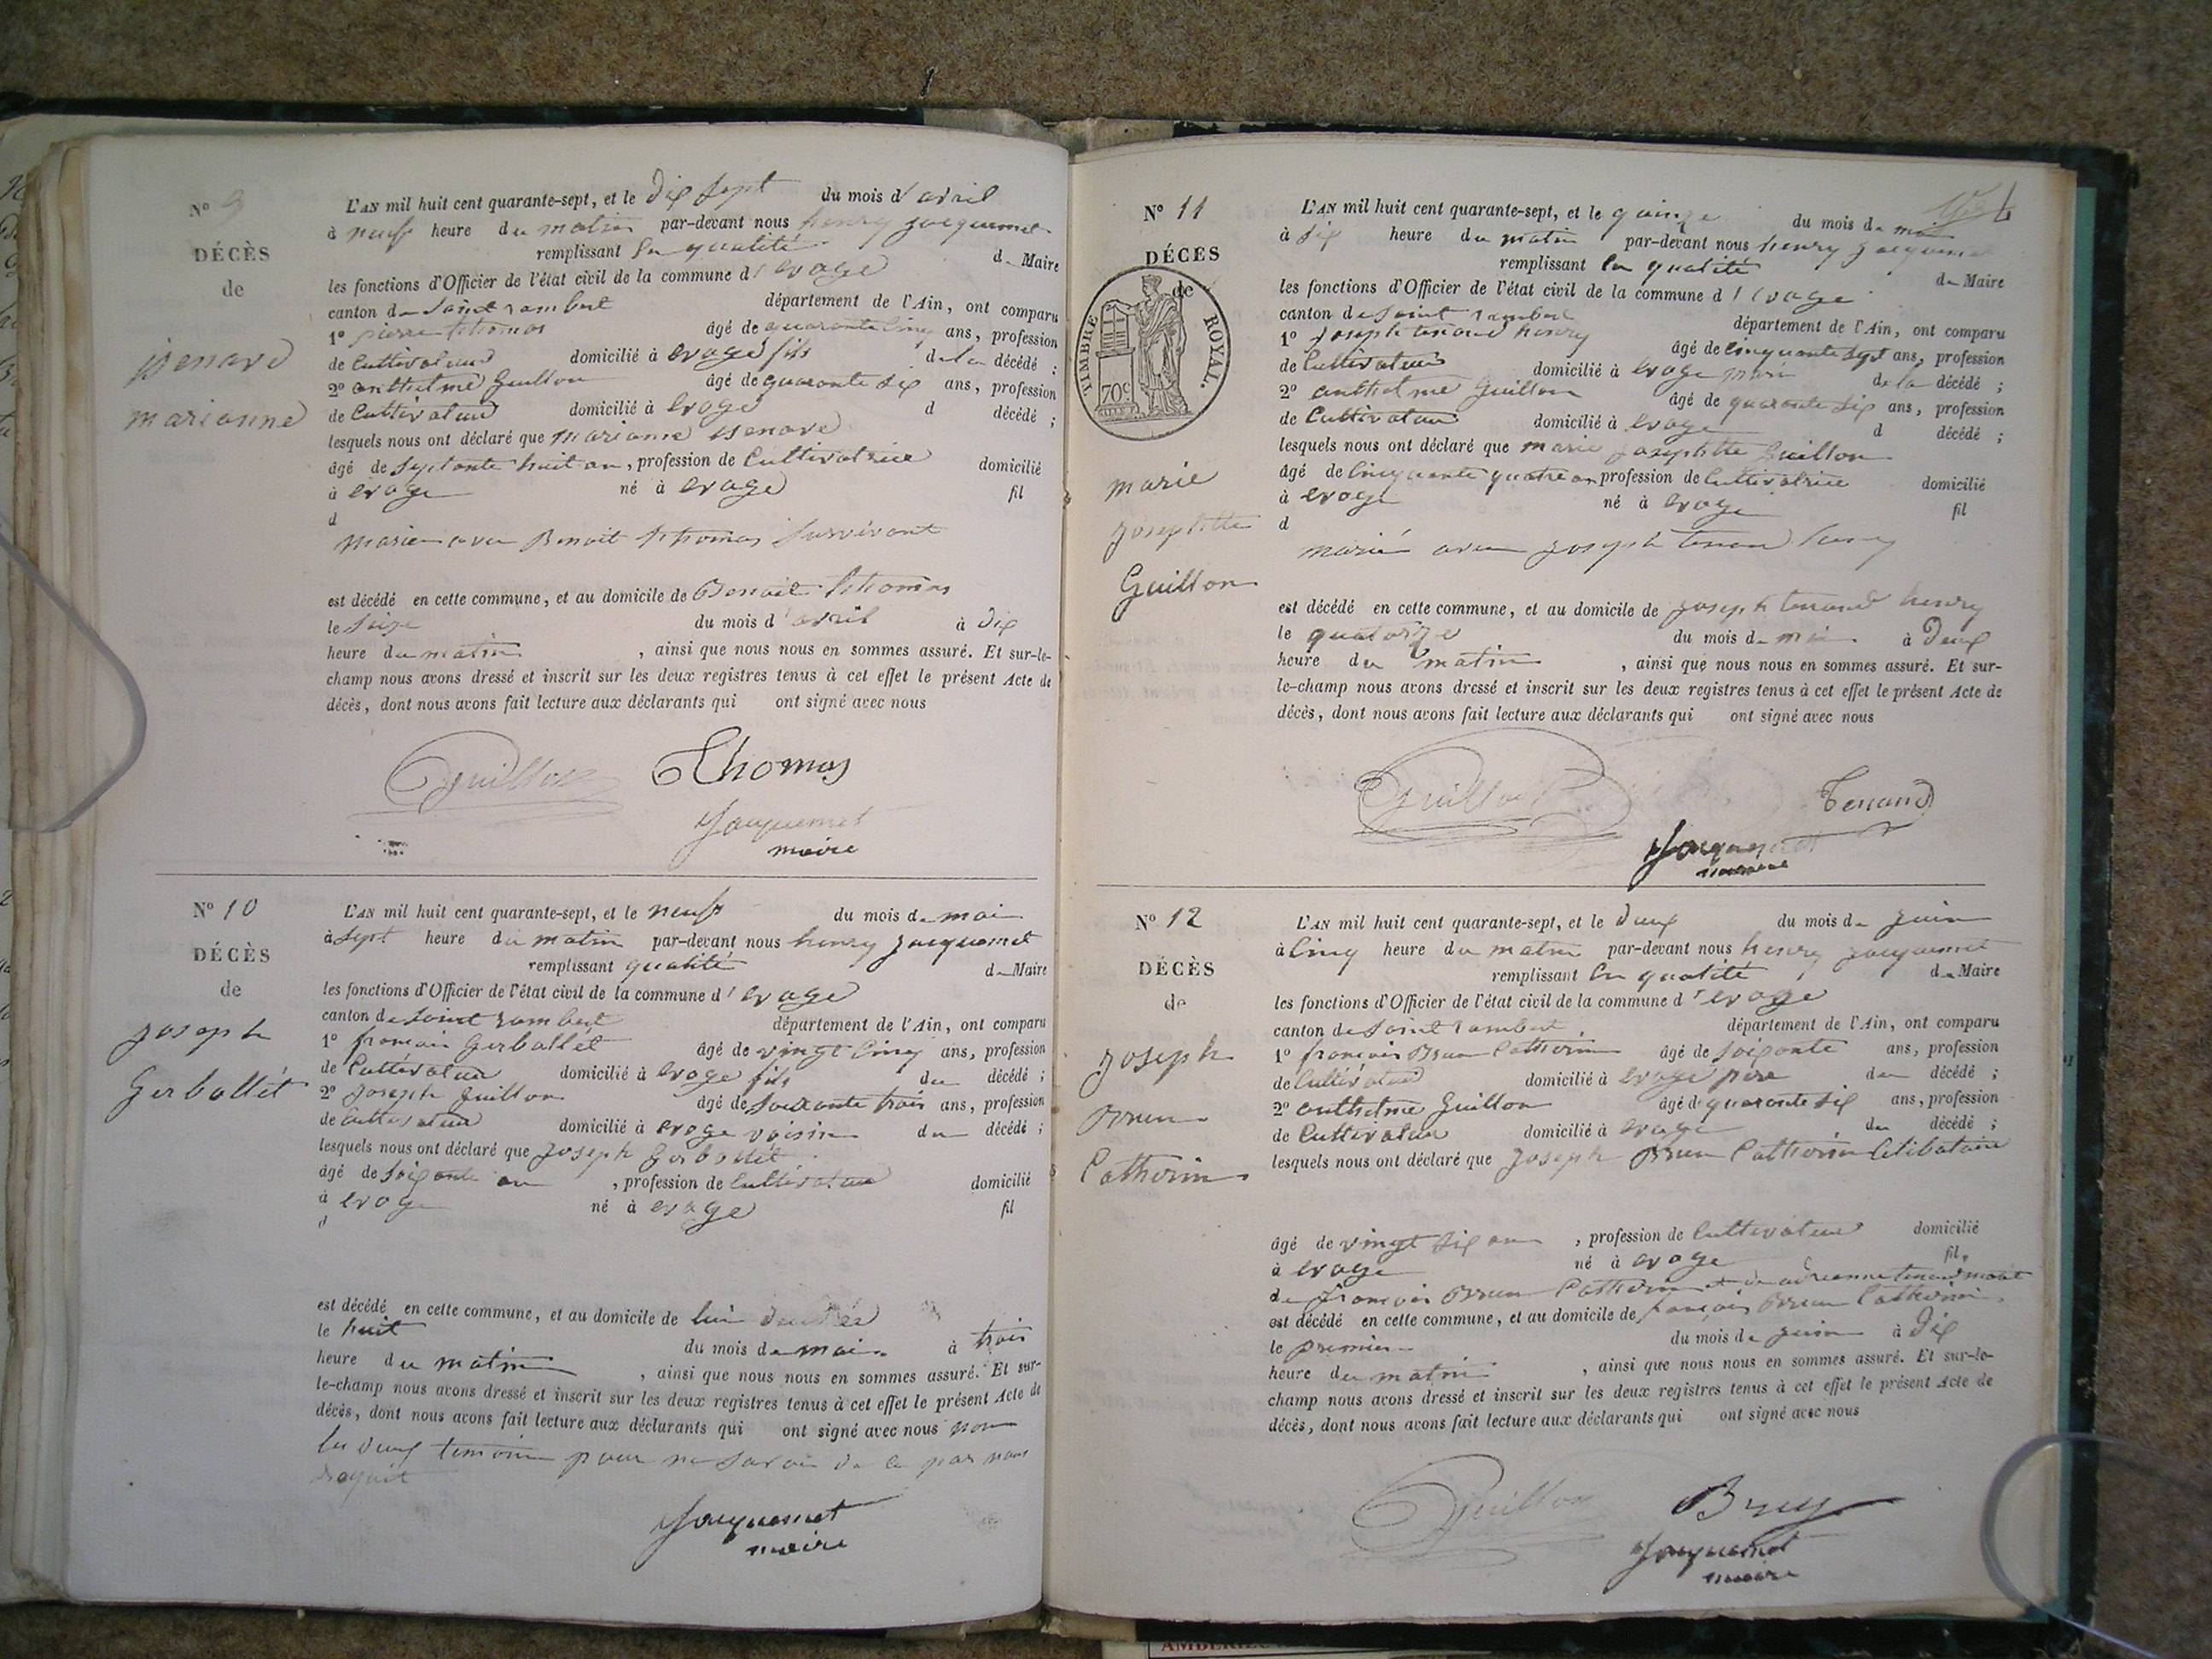 N° 9
DÉCÈS
de
Benard
marianne
L'AN mil huit cent quarante-sept, et le dix sept du mois d'avril
à neuf heure du matin par-devant nous henry jacquemet
remplissant en qualité de Maire
les fonctions d'Officier de l'état civil de la commune d'evoge
canton de Saint rambert département de l'Ain, ont comparu
1° pierre thomas âgé de quarante cinq ans, profession
de Cultivateur domicilié à evoge fils de la décédé ;
2° anthelme Guillon âgé de quarante six ans, profession
de Cultivateur domicilié à evoge d décédé ;
lesquels nous ont déclaré que marianne Benard
âgé de septante huit an, profession de Cultivatrice domicilié
à evoge né à evoge fil
d
mariée avec Benoit thomas Survivant
est décédé en cette commune, et au domicile de Benoit thomas
le Seize du mois d'avril à dix
heure du matin, ainsi que nous nous en sommes assuré. Et sur-le-
champ nous avons dressé et inscrit sur les deux registres tenus à cet effet le présent Acte de
décès, dont nous avons fait lecture aux déclarants qui ont signé avec nous
Guillon Thomas
Jacquemet
maire
N° 10
DÉCÈS
de
joseph
Gerbollét
L'AN mil huit cent quarante-sept, et le neuf du mois de mai
à Sept heure du matin par-devant nous henry jacquemet
remplissant qualité de Maire
les fonctions d'Officier de l'état civil de la commune d'evoge
canton de Saint rambert département de l'Ain, ont comparu
1° françois Gerbollét âgé de vingt cinq ans, profession
de Cultivateur domicilié à evoge fils du décédé ;
2° joseph Guillon âgé de soixante trois ans, profession
de Cultivateur domicilié à evoge voisin du décédé ;
lesquels nous ont déclaré que joseph Gerbollét
âgé de soixante an, profession de Cultivateur domicilié
à evoge né à evoge fil
d
est décédé en cette commune, et au domicile de lui
le huit du mois de mai à trois
heure du matin, ainsi que nous nous en sommes assuré. Et sur-
le-champ nous avons dressé et inscrit sur les deux registres tenus à cet effet le présent Acte de
décès, dont nous avons fait lecture aux déclarants qui ont signé avec nous non
les deux temoin pour ne savoir de ce par nous
requit
Jacquemet
maire
N° 11
DÉCÈS
de
TIMBRE ROYAL.
70c
marie
josephtte
Guillon
L'AN mil huit cent quarante-sept, et le quinze du mois de mai
à six heure du matin par-devant nous henry jacquemet
remplissant en qualité de Maire
les fonctions d'Officier de l'état civil de la commune d'evoge
canton de Saint rambert département de l'Ain, ont comparu
1° joseph tenand henry âgé de cinquante sept ans, profession
de Cultivateur domicilié à evoge mari de la décédé ;
2° anthelme Guillon âgé de quarante six ans, profession
de Cultivateur domicilié à evoge d décédé ;
lesquels nous ont déclaré que marie josephtte Guillon
âgé de cinquante quatre an profession de Cultivatrice domicilié
à evoge né à evoge fil
d
marié avec joseph tenand henry
est décédé en cette commune, et au domicile de joseph tenand henry
le quatorze du mois de mai à deux
heure du matin, ainsi que nous nous en sommes assuré. Et sur-
le-champ nous avons dressé et inscrit sur les deux registres tenus à cet effet le présent Acte de
décès, dont nous avons fait lecture aux déclarants qui ont signé avec nous
Guillon Tenand
Jacquemet
maire
N° 12
DÉCÈS
de
joseph
Brun
Catherin
L'AN mil huit cent quarante-sept, et le deux du mois de juin
à Cinq heure du matin par-devant nous henry jacquemet
remplissant en qualité de Maire
les fonctions d'Officier de l'état civil de la commune d'evoge
canton de Saint rambert département de l'Ain, ont comparu
1° françois Brun Catherin âgé de soixante ans, profession
de Cultivateur domicilié à evoge père du décédé ;
2° anthelme Guillon âgé de quarante six ans, profession
de Cultivateur domicilié à evoge du décédé ;
lesquels nous ont déclaré que joseph Brun Catherin Célibataire
âgé de vingt six an, profession de Cultivateur domicilié
à evoge né à evoge fil
de françois Brun Catherin et de adrienne tenand
est décédé en cette commune, et au domicile de françois Brun Catherin
le premier du mois de juin à dix
heure du matin, ainsi que nous nous en sommes assuré. Et sur-le-
champ nous avons dressé et inscrit sur les deux registres tenus à cet effet le présent Acte de
décès, dont nous avons fait lecture aux déclarants qui ont signé avec nous
Guillon Bruy
Jacquemet
maire